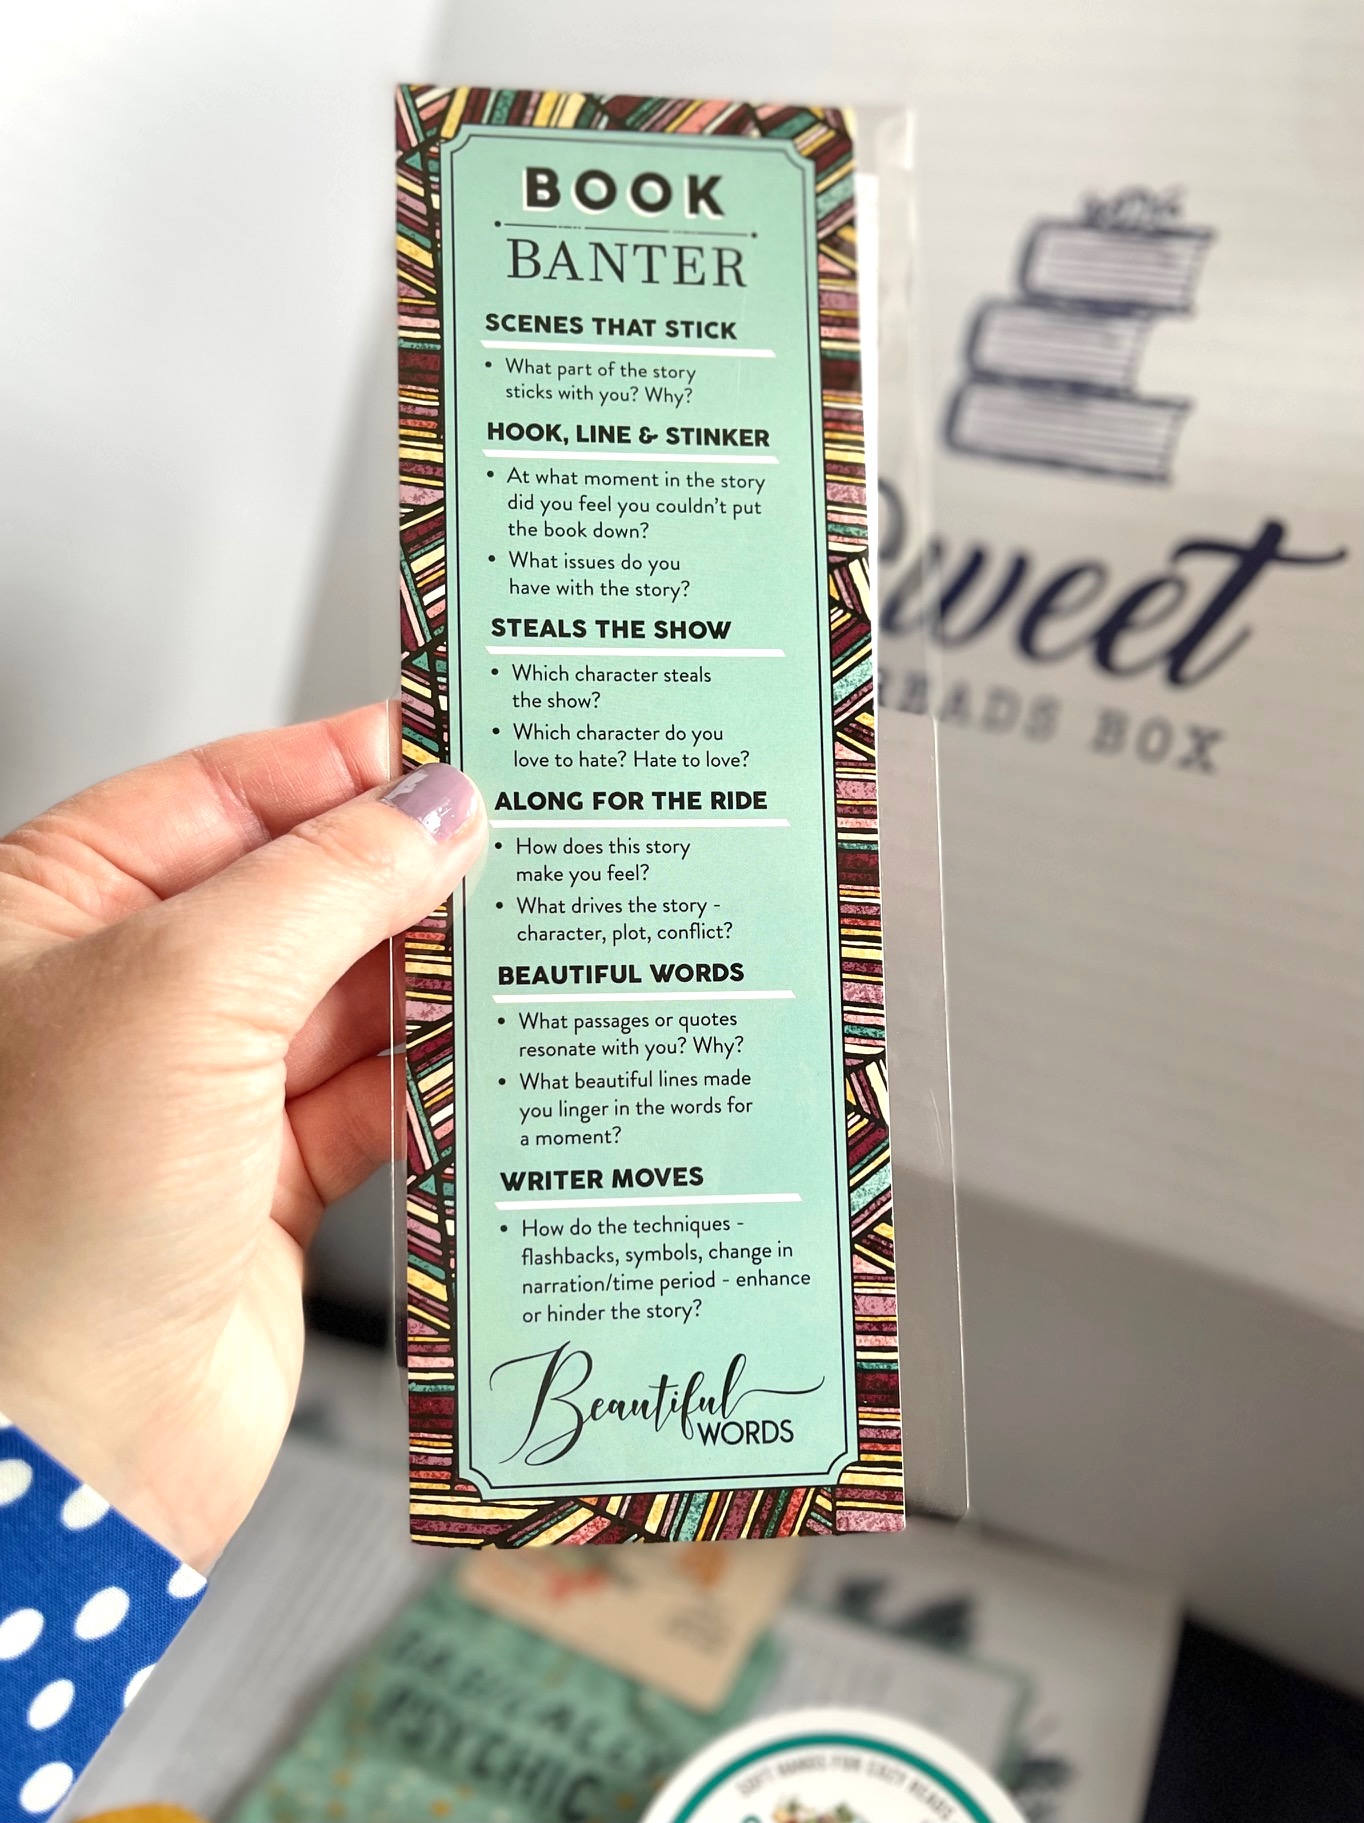 BOOK
BANTER
SCENES THAT STICK
• What part of the story
sticks with you? Why?
HOOK, LINE & STINKER
• At what moment in the story
did you feel you couldn't put
the book down?
• What issues do you
have with the story?
STEALS THE SHOW
• Which character steals
the show?
• Which character do you
love to hate? Hate to love?
ALONG FOR THE RIDE
• How does this story
make you feel?
• What drives the story -
character, plot, conflict?
BEAUTIFUL WORDS
• What passages or quotes
resonate with you? Why?
• What beautiful lines made
you linger in the words for
a moment?
WRITER MOVES
• How do the techniques -
flashbacks, symbols, change in
narration/time period - enhance
or hinder the story?
Beautiful
WORDS
Sweet
READS BOX
PSYCHIC
SOFT HANDS FOR COZY READS